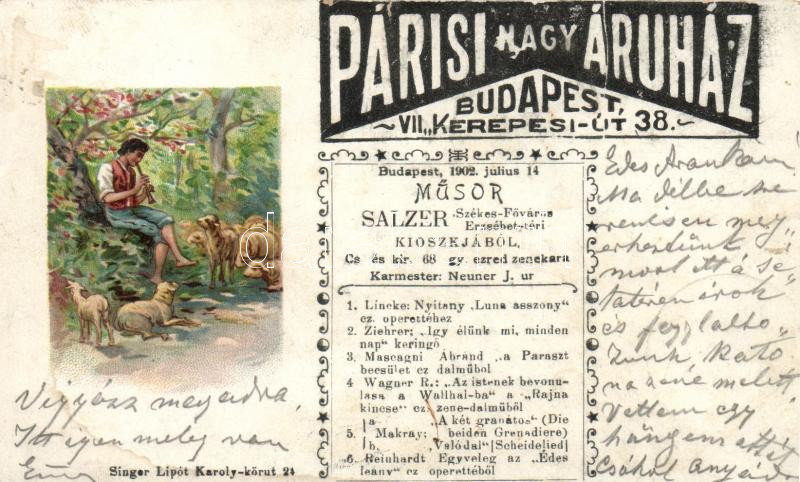 PÁRISI NAGY ÁRUHÁZ
BUDAPEST,
~ VII., KEREPESI-ÚT 38. ~
Budapest, 1902. július 14
MŰSOR
SALZER Székes-Főváros
Erzsébet-téri
KIOSZKJÁBÓL,
Cs és kir. 68 gy. ezred zenekara
Karmester: Neuner J. ur
1. Lincke: Nyitány „Luna asszony“
cz. operettéhez
2. Ziehrer: „Igy élünk mi, minden
nap“ keringő
3. Mascagni Ábránd „a Paraszt
becsület cz dalműból
4 Wagner R.: „Az istenek bevonu-
lása a Wallhal-ba“ a „Rajna
kincse“ cz. zene-dalműből
a „A két gránátos“ (Die
5. Makray: beiden Grenadiere)
b. „Velódal“ [Scheidelied]
6. Reinhardt Egyveleg az „Édes
leány“ cz operettéből
Édes Arankám
Ma délbe sze
rencsésen meg„
érkeztünk
most itt a
térén
és
Zunk kató
na zene mellett
Vettem egy
Csókol anyád
Vigyázz magadra.
Itt igen meleg van
Singer Lipót Karoly-körut 24